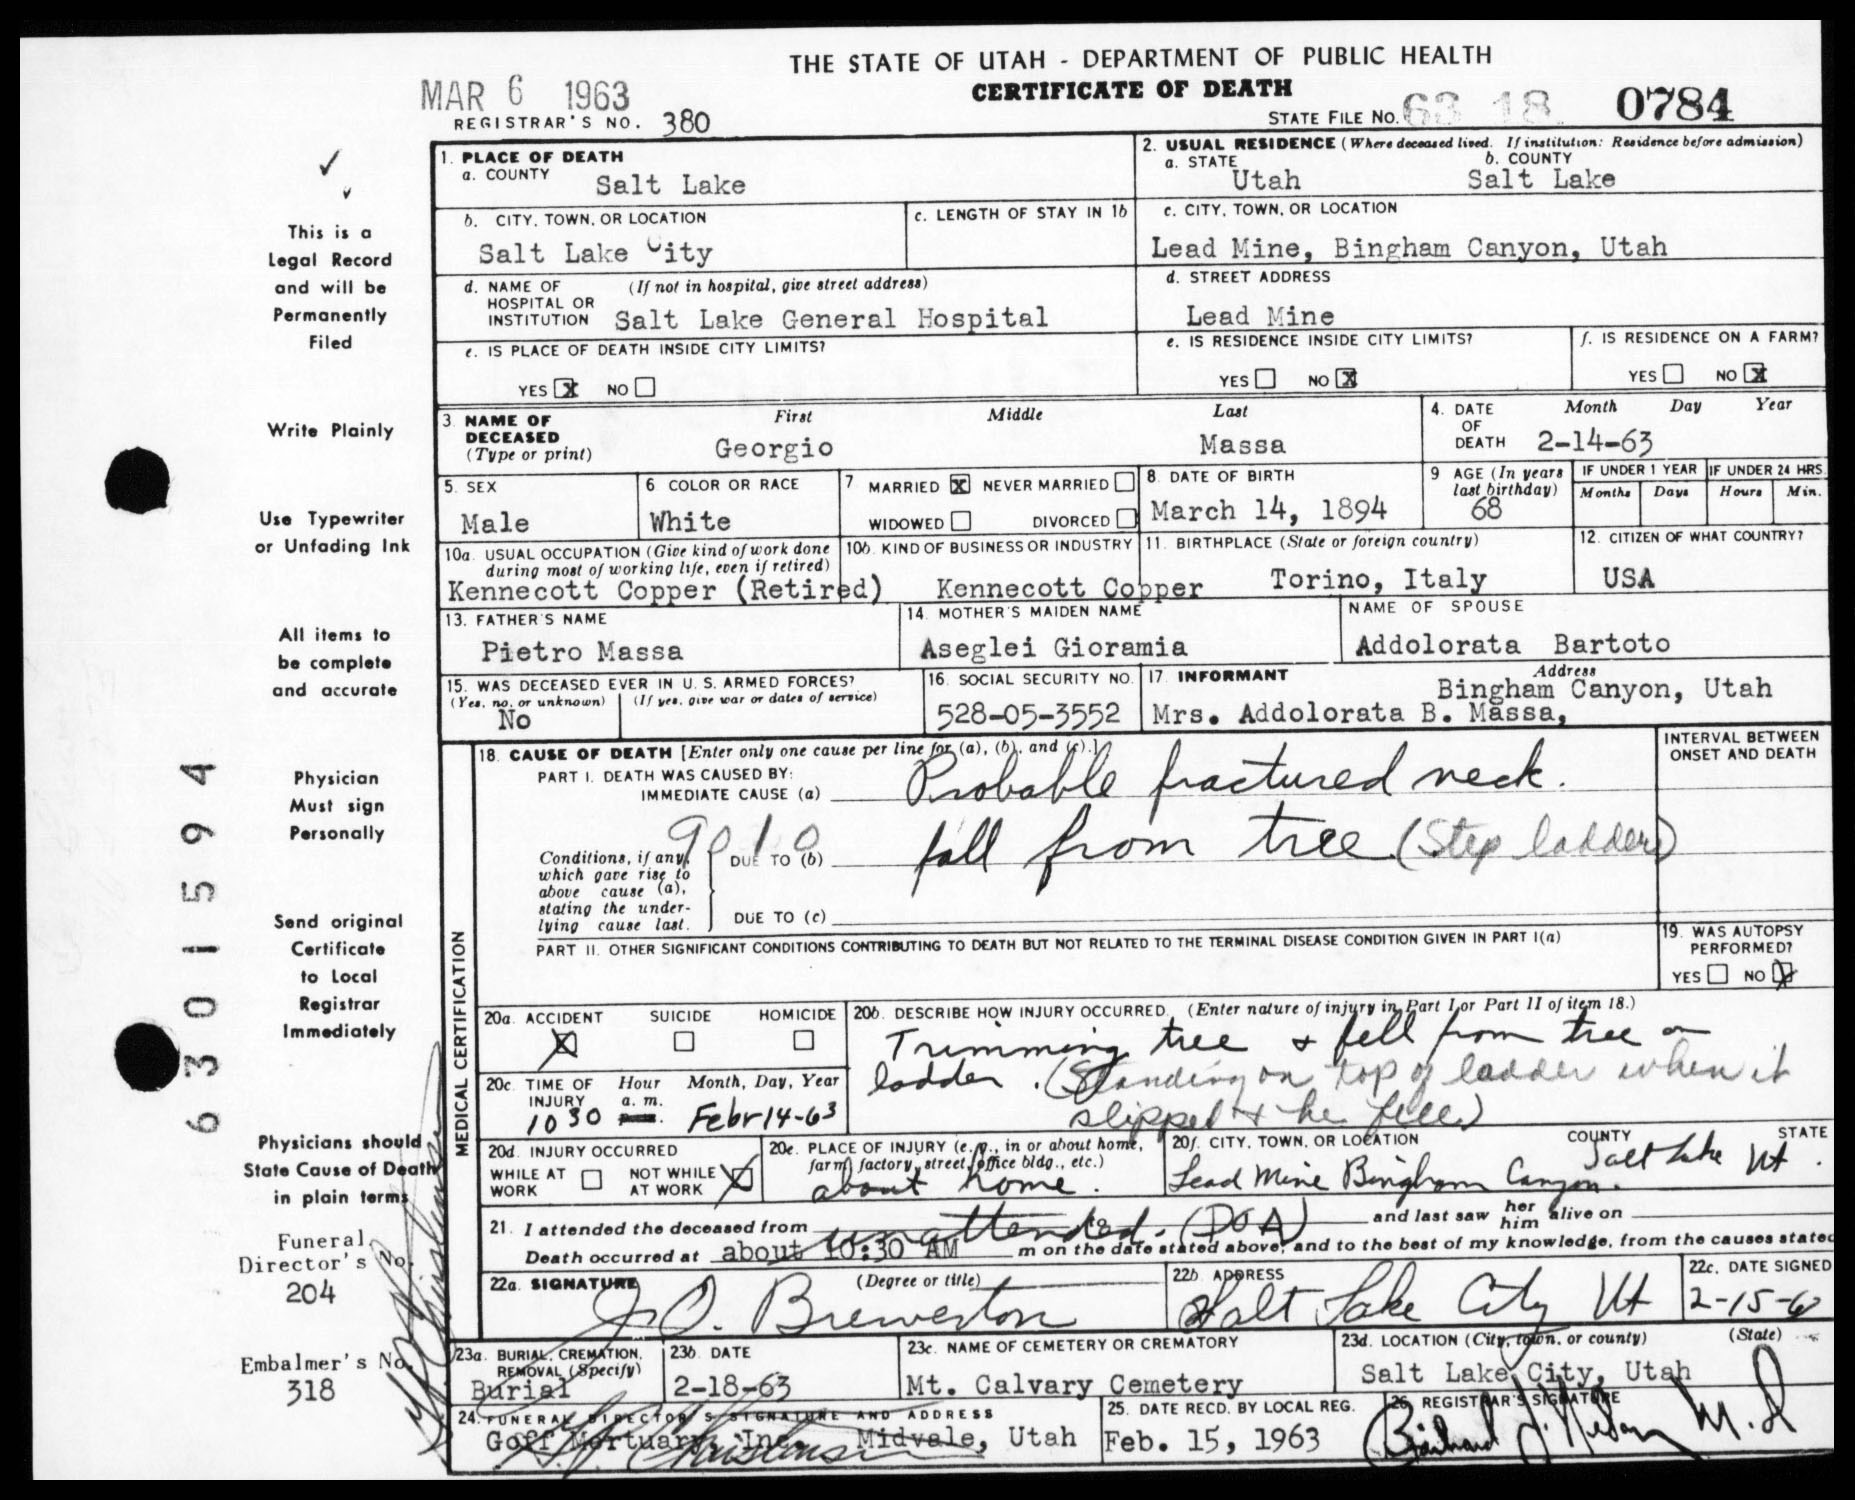 THE STATE OF UTAH - DEPARTMENT OF PUBLIC HEALTH
CERTIFICATE OF DEATH
MAR 6 1963
REGISTRAR'S NO. 380
STATE FILE NO. 63 18 0784
✓
✓
This is a
Legal Record
and will be
Permanently
Filed
Write Plainly
Use Typewriter
or Unfading Ink
All items to
be complete
and accurate
Physician
Must sign
Personally
Send original
Certificate
to Local
Registrar
Immediately
Physicians should
State Cause of Death
in plain terms
Funeral
Director's No.
204
Embalmer's No.
318
6301594
1. PLACE OF DEATH
a. COUNTY Salt Lake
2. USUAL RESIDENCE (Where deceased lived. If institution: Residence before admission)
a. STATE Utah b. COUNTY Salt Lake
b. CITY, TOWN, OR LOCATION Salt Lake City
c. LENGTH OF STAY IN 1b
c. CITY, TOWN, OR LOCATION
Lead Mine, Bingham Canyon, Utah
d. NAME OF HOSPITAL OR INSTITUTION (If not in hospital, give street address)
Salt Lake General Hospital
d. STREET ADDRESS
Lead Mine
e. IS PLACE OF DEATH INSIDE CITY LIMITS?
YES X NO
e. IS RESIDENCE INSIDE CITY LIMITS?
YES NO X
f. IS RESIDENCE ON A FARM?
YES NO X
3. NAME OF DECEASED (Type or print) First Middle Last
Georgio Massa
4. DATE OF DEATH Month Day Year
2-14-63
5. SEX
Male
6 COLOR OR RACE
White
7 MARRIED X NEVER MARRIED
WIDOWED DIVORCED
8. DATE OF BIRTH
March 14, 1894
9 AGE (In years last birthday)
68
IF UNDER 1 YEAR Months Days
IF UNDER 24 HRS. Hours Min.
10a. USUAL OCCUPATION (Give kind of work done during most of working life, even if retired)
Kennecott Copper (Retired)
10b. KIND OF BUSINESS OR INDUSTRY
Kennecott Copper
11. BIRTHPLACE (State or foreign country)
Torino, Italy
12. CITIZEN OF WHAT COUNTRY?
USA
13. FATHER'S NAME
Pietro Massa
14. MOTHER'S MAIDEN NAME
Aseglei Gioramia
NAME OF SPOUSE
Addolorata Bartoto
15. WAS DECEASED EVER IN U. S. ARMED FORCES?
(Yes, no, or unknown) (If yes, give war or dates of service)
No
16. SOCIAL SECURITY NO.
528-05-3552
17. INFORMANT Address
Bingham Canyon, Utah
Mrs. Addolorata B. Massa,
MEDICAL CERTIFICATION
18. CAUSE OF DEATH [Enter only one cause per line for (a), (b), and (c).]
INTERVAL BETWEEN ONSET AND DEATH
PART I. DEATH WAS CAUSED BY:
IMMEDIATE CAUSE (a) Probable fractured neck.
9010
Conditions, if any, which gave rise to above cause (a), stating the underlying cause last.
DUE TO (b) fall from tree (Step ladder)
DUE TO (c)
PART II. OTHER SIGNIFICANT CONDITIONS CONTRIBUTING TO DEATH BUT NOT RELATED TO THE TERMINAL DISEASE CONDITION GIVEN IN PART I(a)
19. WAS AUTOPSY PERFORMED?
YES NO X
20a. ACCIDENT SUICIDE HOMICIDE
X
20b. DESCRIBE HOW INJURY OCCURRED. (Enter nature of injury in Part I or Part II of item 18.)
Trimming tree & fell from tree or
ladder. (Standing on top of ladder when it
slipped & he fell)
20c. TIME OF INJURY Hour a. m. Month, Day, Year
10 30 Febr 14-63
20d. INJURY OCCURRED
WHILE AT WORK NOT WHILE AT WORK X
20e. PLACE OF INJURY (e. g., in or about home, farm, factory, street, office bldg., etc.)
about home.
20f. CITY, TOWN, OR LOCATION COUNTY STATE
Lead Mine Bingham Canyon. Salt Lake Ut.
21. I attended the deceased from unattended. (DOA) and last saw her him alive on
Death occurred at about 10:30 AM m on the date stated above; and to the best of my knowledge, from the causes stated
22a. SIGNATURE (Degree or title)
J O. Brewerton
22b. ADDRESS
Salt Lake City Ut
22c. DATE SIGNED
2-15-6
23a. BURIAL, CREMATION, REMOVAL (Specify)
Burial
23b. DATE
2-18-63
23c. NAME OF CEMETERY OR CREMATORY
Mt. Calvary Cemetery
23d. LOCATION (City, town, or county) (State)
Salt Lake City, Utah
24. FUNERAL DIRECTOR'S SIGNATURE AND ADDRESS
Goff Mortuary, Inc. Midvale, Utah
25. DATE RECD. BY LOCAL REG.
Feb. 15, 1963
26. REGISTRAR'S SIGNATURE